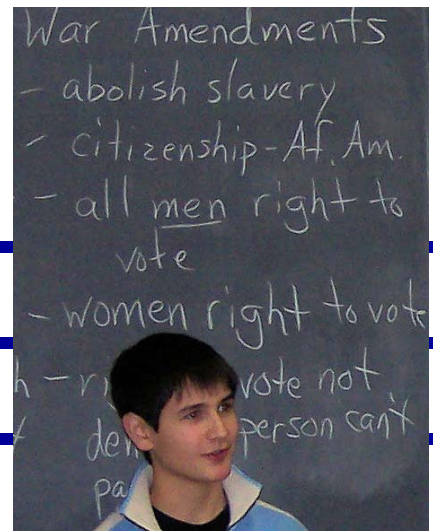 War Amendments
- abolish slavery
- citizenship-Af. Am.
- all men right to
vote
- women right to vote
- vote not
person can't